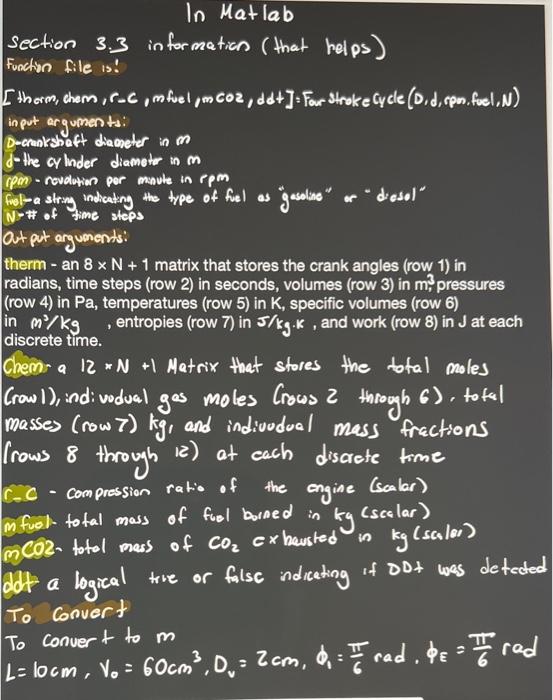 In Matlab
Section 3.3 information (that helps)
Function file is!
[therm, chem, r-c, mfuel, mCO2, ddt] = FourStrokeCycle(D, d, rpm, fuel, N)
input arguments:
D-crankshaft diameter in m
d-the cylinder diameter in m
rpm - revolution per minute in rpm
fuel-a string indicating the type of fuel as "gasoline" or "diesel"
N-# of time steps
Out put arguments:
therm - an 8 × N + 1 matrix that stores the crank angles (row 1) in
radians, time steps (row 2) in seconds, volumes (row 3) in m³, pressures
(row 4) in Pa, temperatures (row 5) in K, specific volumes (row 6)
in m³/kg , entropies (row 7) in J/kg·K , and work (row 8) in J at each
discrete time.
Chem- a 12 * N +1 Matrix that stores the total moles
(row 1), indivodual gas moles (rows 2 through 6), total
masses (row 7) kg, and indivodual mass fractions
(rows 8 through 12) at each discrete time
r_c - compression ratio of the engine (scalar)
m fuel- total mass of fuel borned in kg (scalar)
mCO2- total mass of CO₂ exhausted in kg (scalar)
ddt a logical true or false indicating if DDt was detected
To Convert
To convert to m
L= 10cm, V₀ = 60cm³, Dᵥ = 2cm, ϕᵢ = π/6 rad, ϕE = π/6 rad